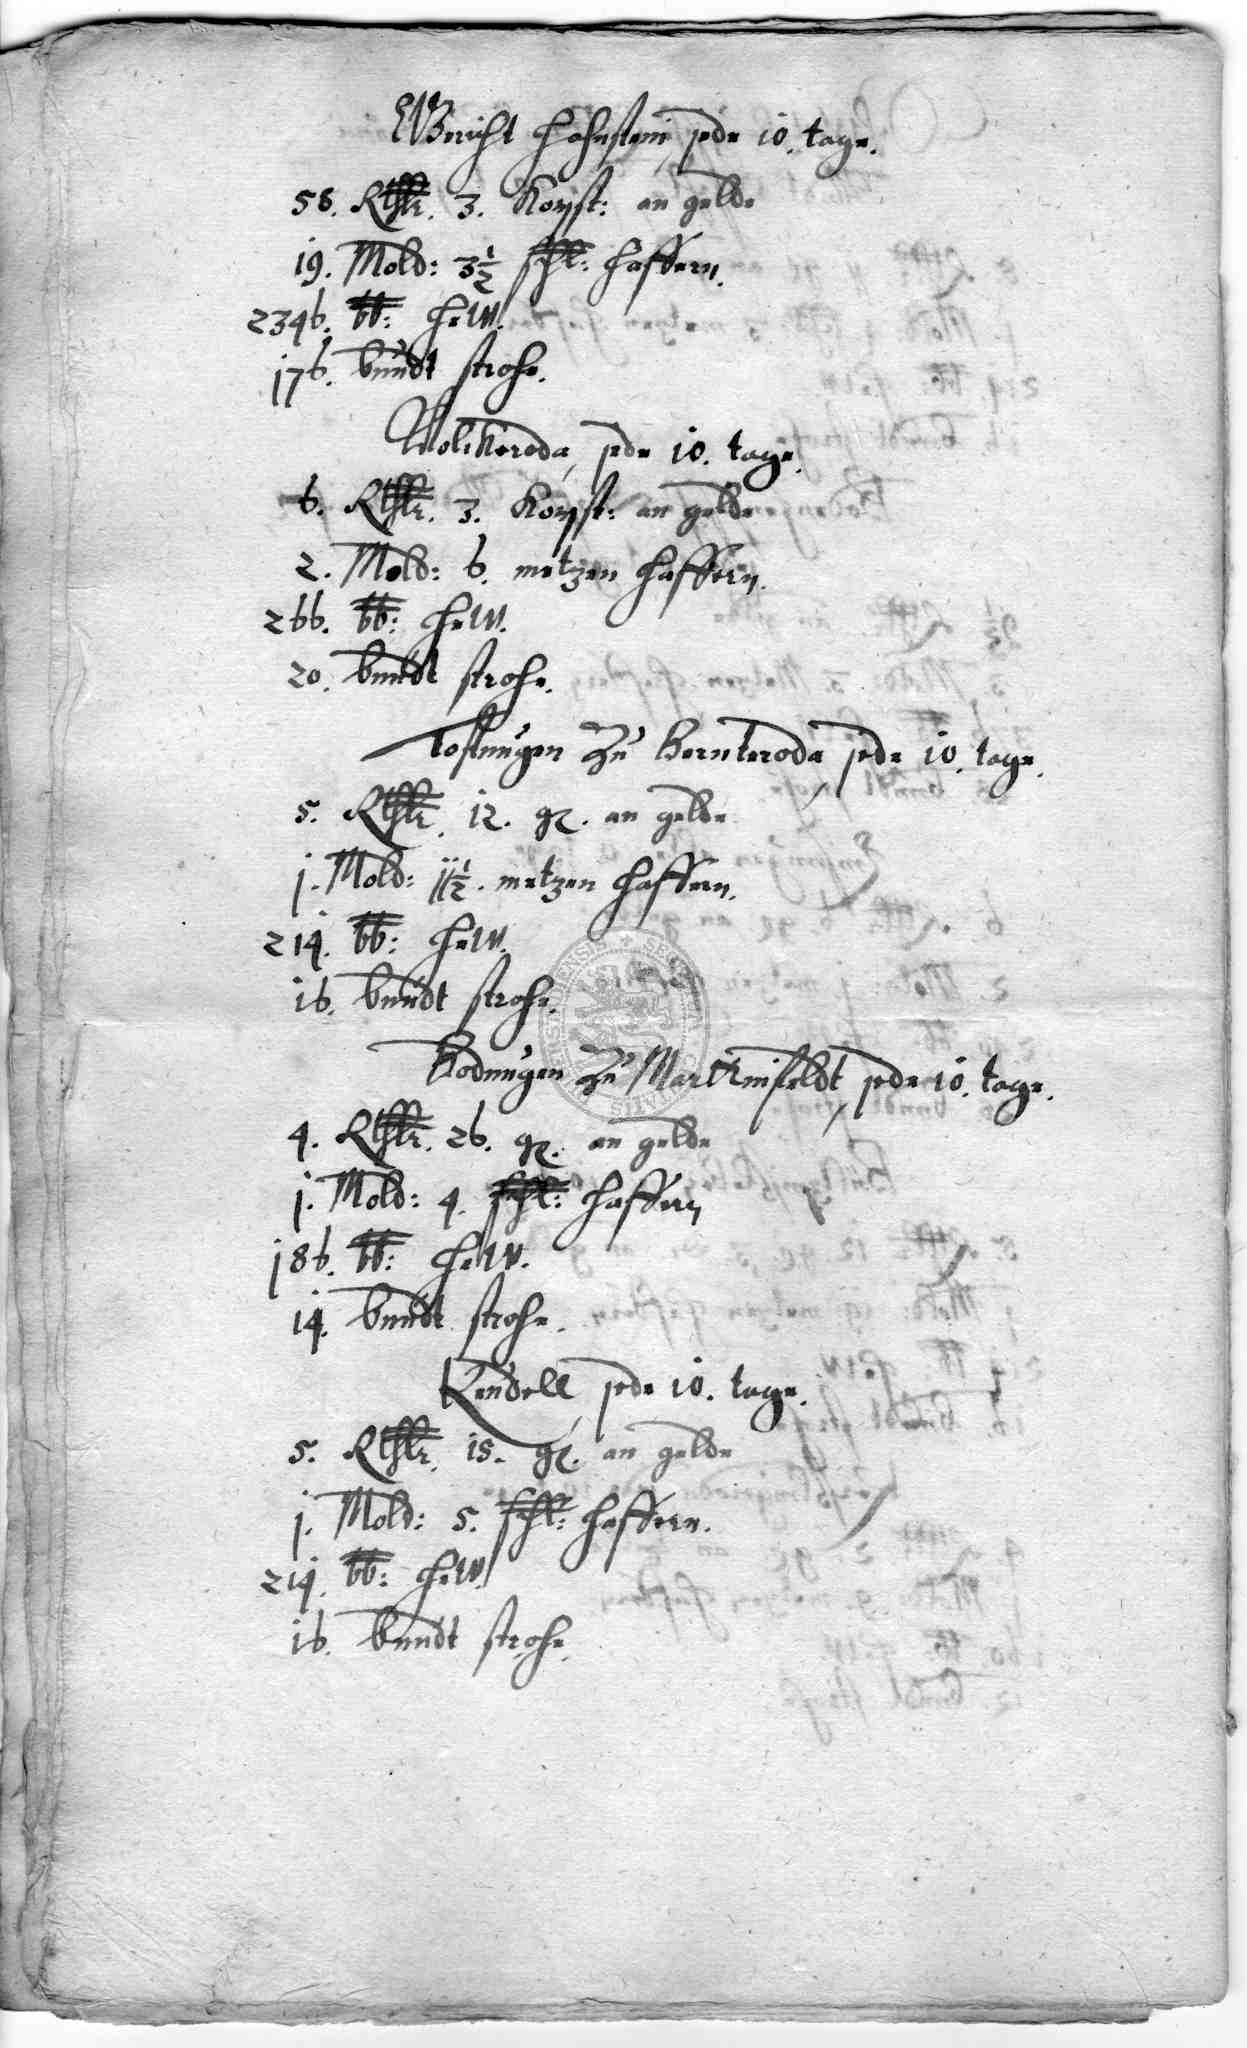 Gericht Hahnstein, jede 10. tage.
58. Rthlr. 3. Kopst: an gelde
19. Mold: 3½ schl: haffern.
2346. lb: hew.
176. bundt strohe.
Wolckeroda, jede 10. tage.
6. Rthlr. 3. Kopst: an gelde
2. Mold: 6. metzen haffern.
266. lb: hew.
20. bundt strohe.
Tastungen zu Bernteroda jede 10. tage.
5. Rthlr. 12. gr. an gelde
j. Mold: 11½. metzen haffern.
214. lb: hew.
16. bundt strohe.
Bodungen zu Martinfeldt, jede 10. tage.
4. Rthlr. 26. gr. an gelde
j. Mold: 4. schl: haffern
186. lb: hew.
14. bundt strohe.
Kendell, jede 10. tage.
5. Rthlr. 15. gr. an gelde
j. Mold: 5. schl: haffern.
214. lb: hew.
16. bundt strohe.